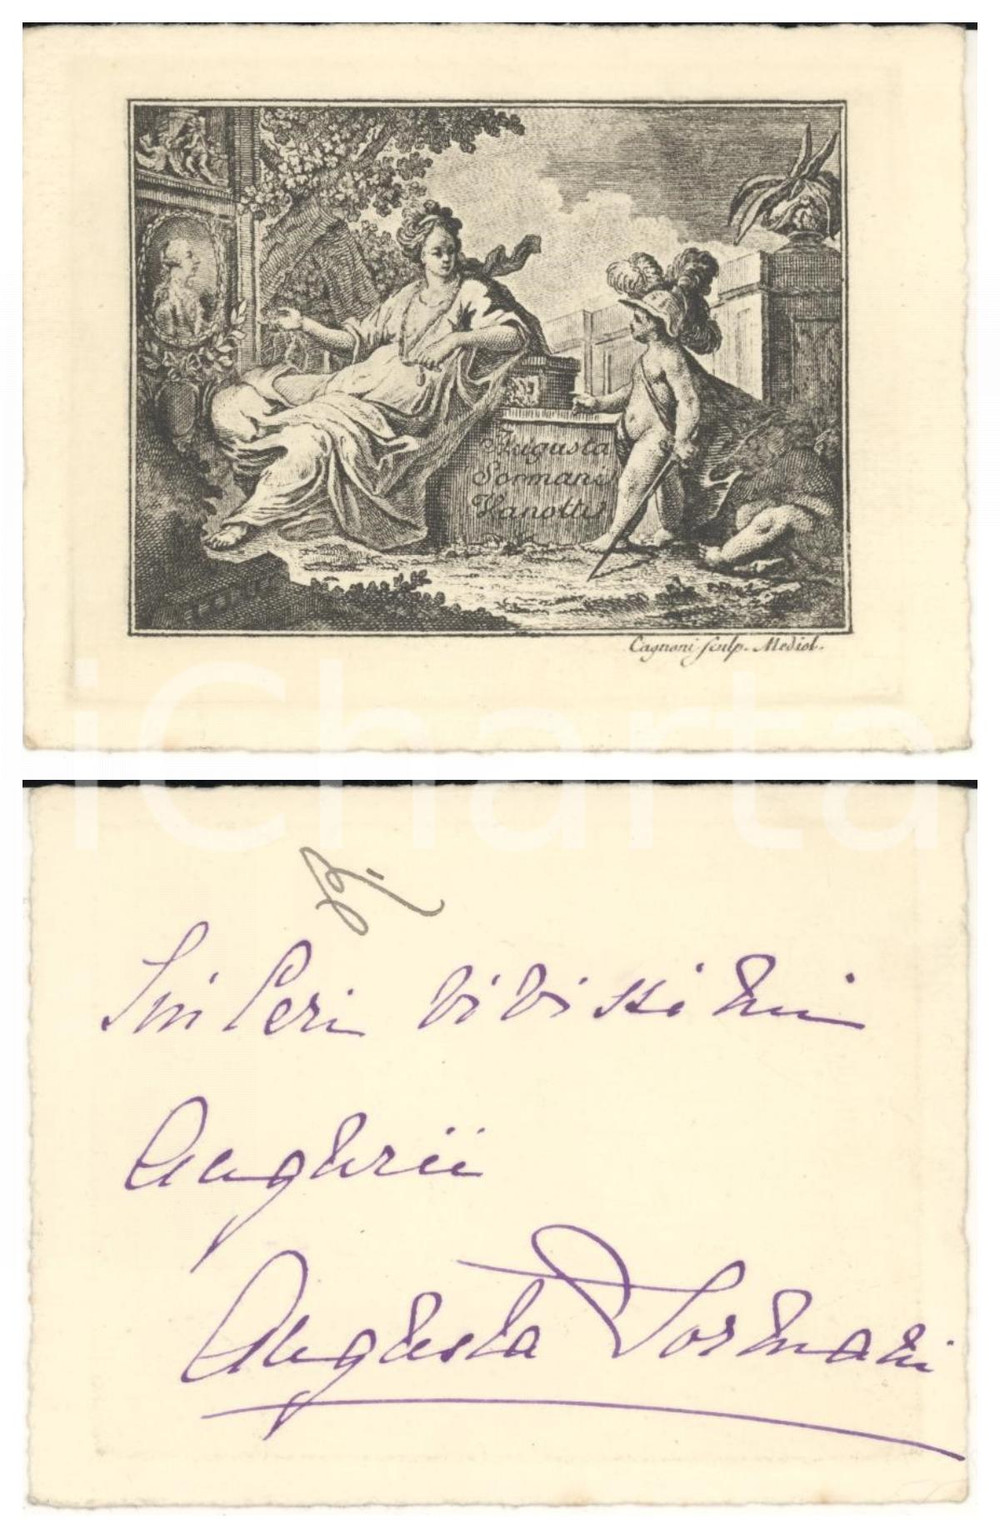 Augusta
Sormani
Vanotti
Cagnoni sculp. Mediol.
iCharta
Sinceri vivissimi
Augurii
Augusta Sormani